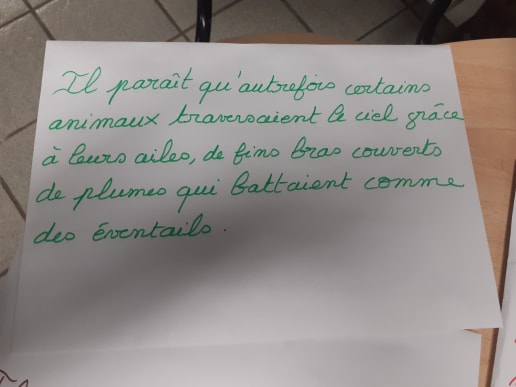 Il paraît qu'autrefois certains
animaux traversaient le ciel grâce
à leurs ailes, de fins bras couverts
de plumes qui battaient comme
des éventails.